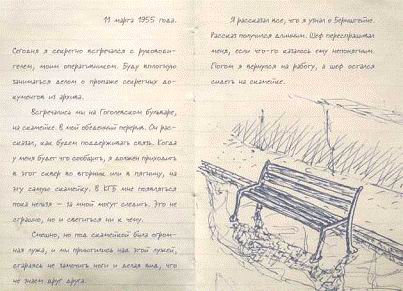 11 марта 1955 года.
Сегодня я секретно встречался с руководи-
телем, моим оперативником. Буду вплотную
заниматься делом о пропаже секретных до-
кументов из архива.
Встречались мы на Гоголевском бульваре,
на скамейке. В мой обеденный перерыв. Он рас-
сказал, как будем поддерживать связь. Когда
у меня будет что сообщить, я должен приходить
в этот сквер во вторник или в пятницу, на
эту самую скамейку. В КГБ мне появляться
пока нельзя – за мной могут следить. Это не
страшно, но и светиться ни к чему.
Смешно, но под скамейкой была огром-
ная лужа, и мы приютились над этой лужей,
стараясь не замочить ноги и делая вид, что
не знаем друг друга.
Я рассказал все, что я узнал о Бернштейне.
Рассказ получился длинным. Шеф переспрашивал
меня, если что-то казалось ему непонятным.
Потом я вернулся на работу, а шеф остался
сидеть на скамейке.